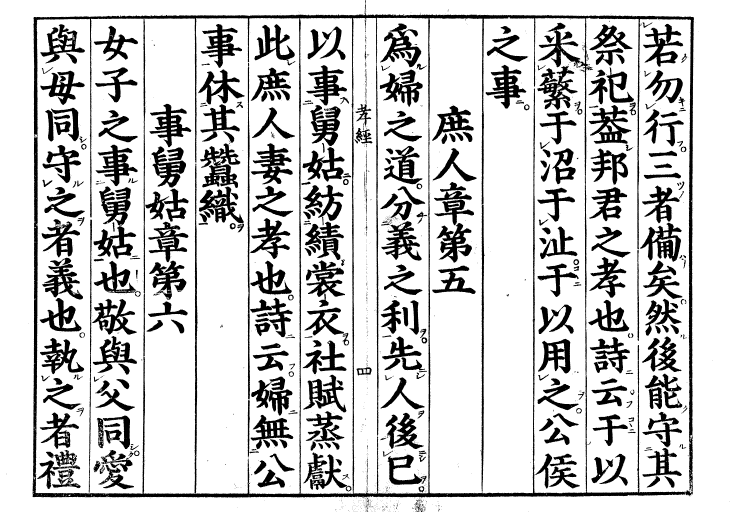 若勿行三者備矣然後能守其
祭祀葢邦君之孝也詩云于以
采蘩于沼于沚于以用之公侯
之事
庶人章第五
爲婦之道分義之利先人後己
孝經
四
以事舅姑紡績裳衣社賦蒸獻
此庶人妻之孝也詩云婦無公
事休其蠶織
事舅姑章第六
女子之事舅姑也敬與父同愛
與母同守之者義也執之者禮